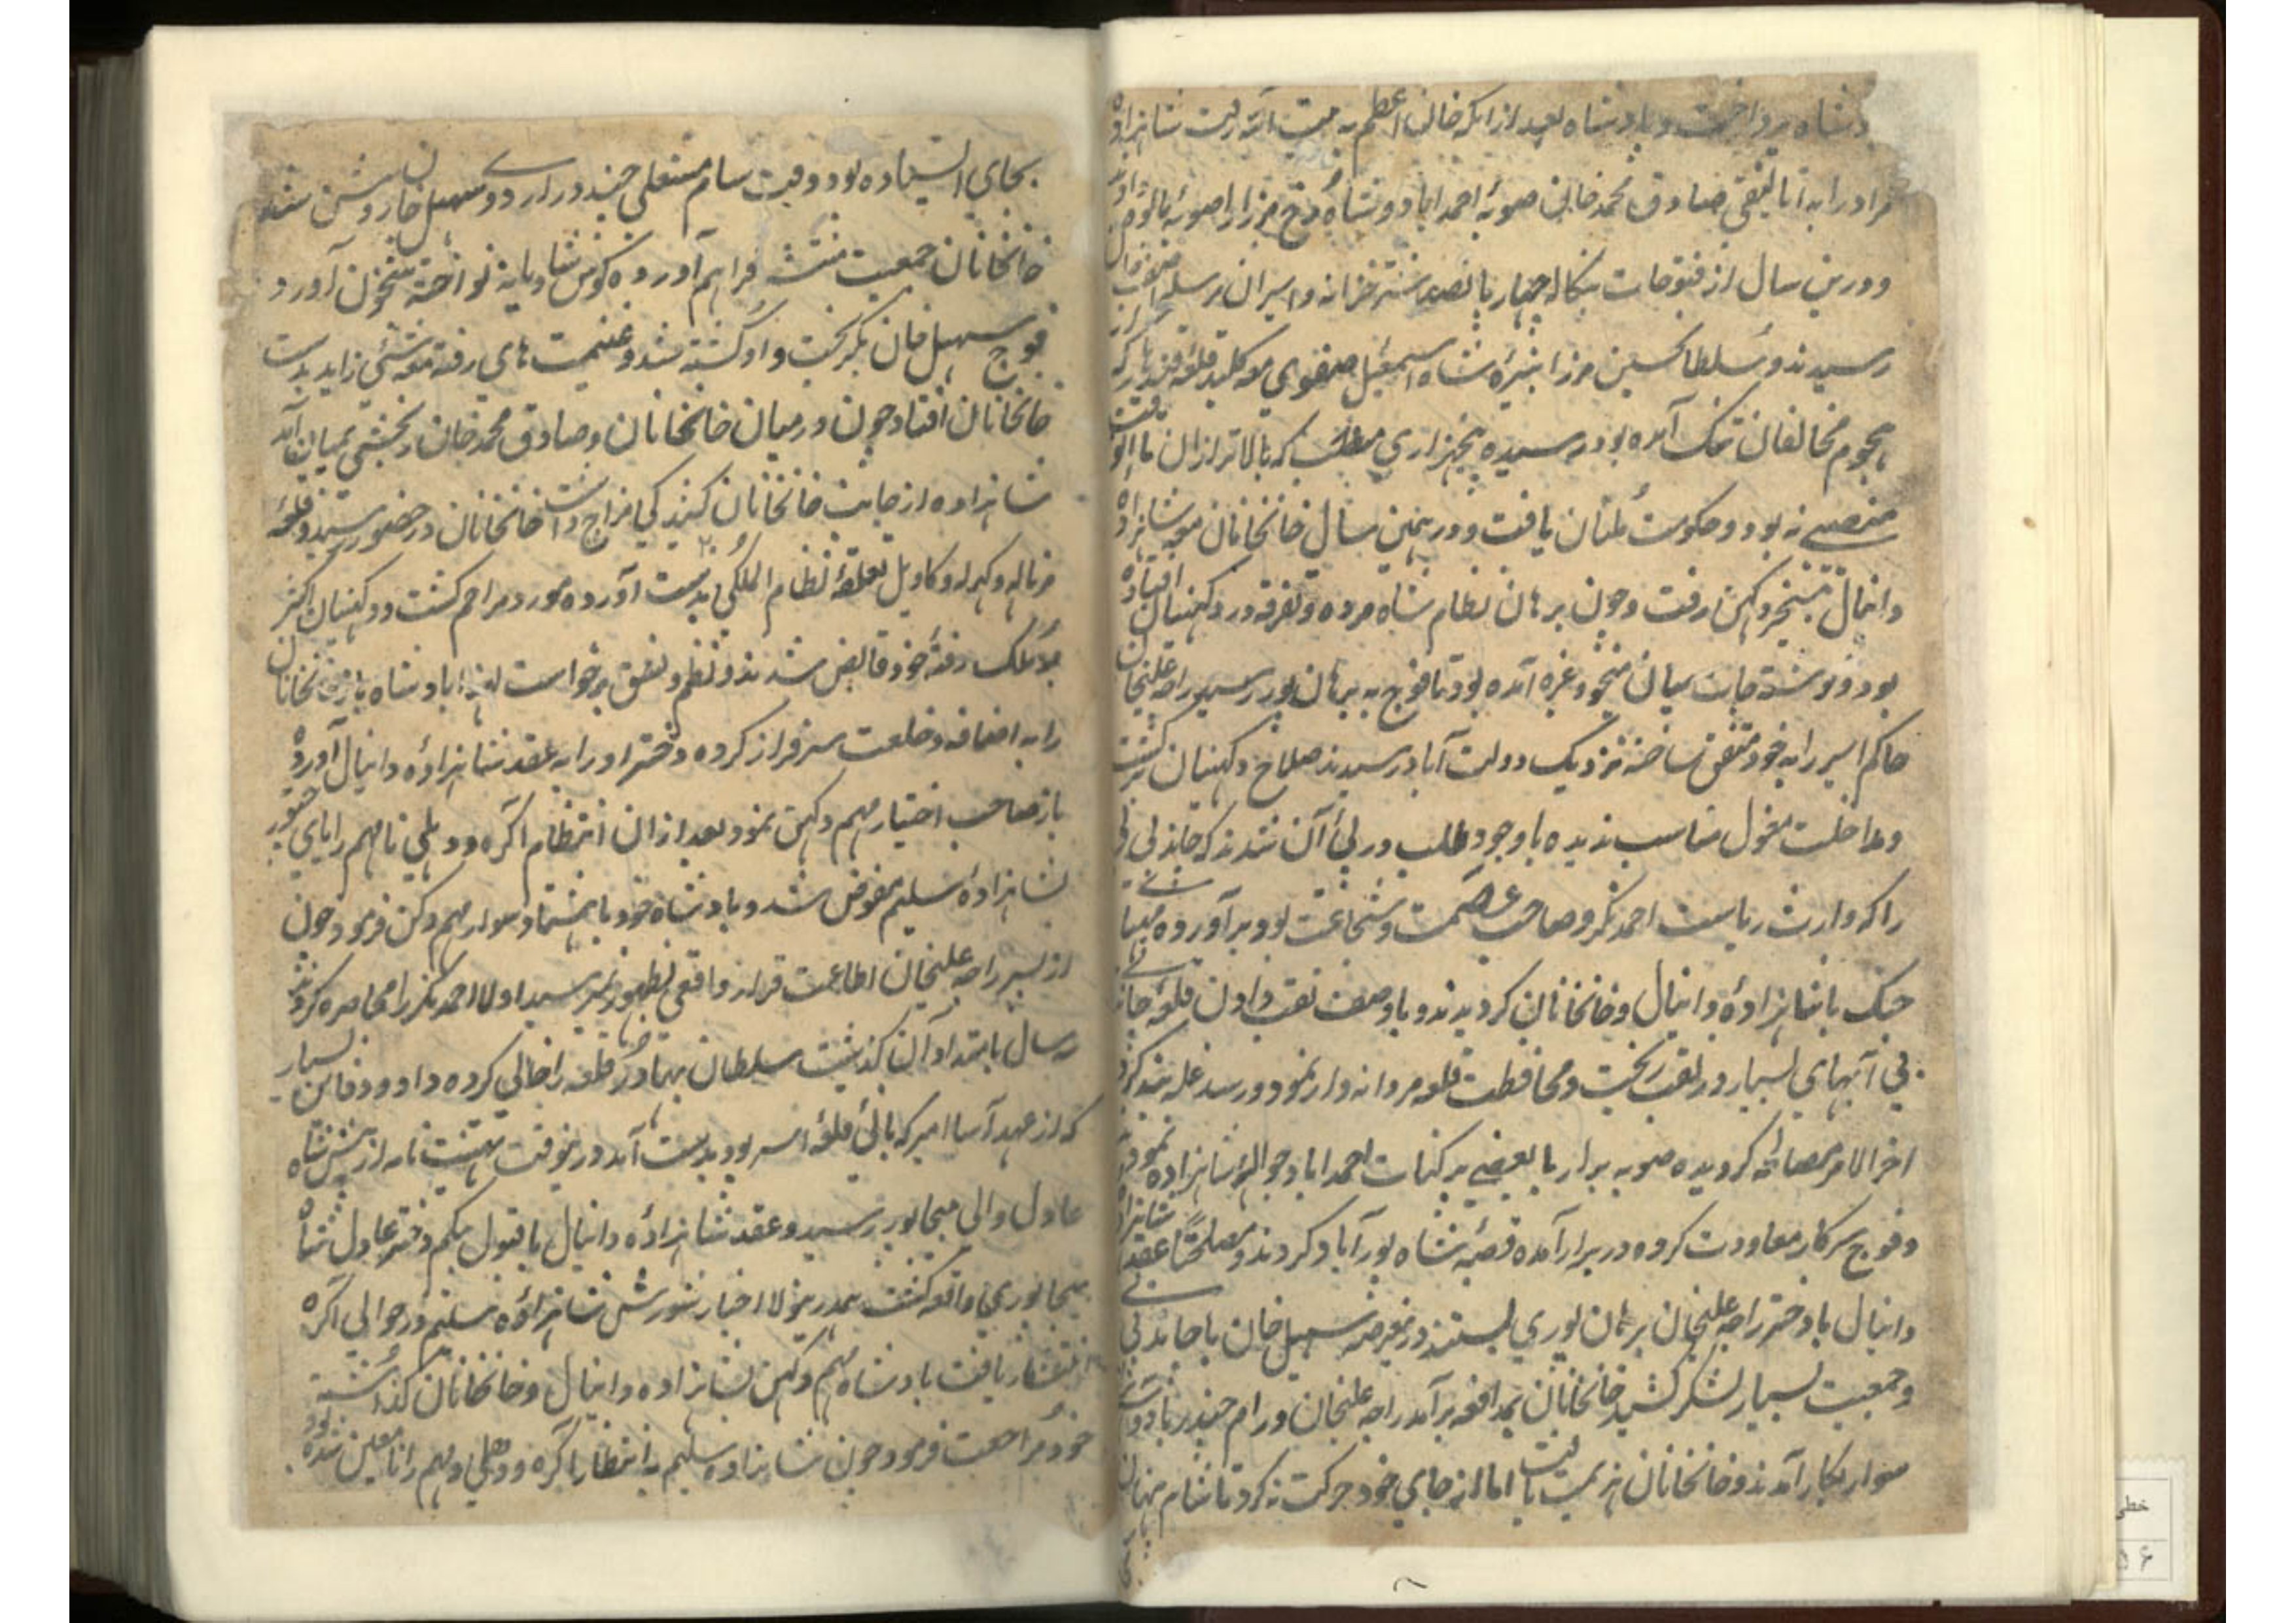 دشاه پرداخت و بادشاه بعد از انکه خان اعظم به بیت الله رفت شاهزاده
مراد را به اتالیقی صادق محمد خان صوبهٔ احمداباد و شاهرخ مرزا را صوبهٔ مالوه داد
و درین سال از فتوحات بنگاله چهار پانصد شتر خزانه و اسیران مرسله
رسیدند و سلطانحسین مرزا نبیرهٔ شاه اسمعیل صفوی معه کلید قلعه قندهار که از
هجوم مخالفان تنگ آمده بود رسیده پنجهزاری منصب که بالاتر از ان ما
منصبی نه بود و حکومت ملتان یافت و در همین سال خانخانان معه شاهزاده
دانیال به تسخیر دکهن رفت و چون برهان نظام شاه مرده و تفرقه در دکهنیان افتاده
بود و نوشته جات میان منجو و غیره آمده بود تا فوج به برهان پور رسید راجه علیخان
حاکم اسیر را به خود متفق ساخته نزدیک دولت آباد رسیدند صلاح دکهنیان برگشت
و مداخلت مغول مناسب ندیده باوجود طلب در پئ آن شدند که چاند بی بی
را که وارث ریاست احمدنگر و صاحب عصمت و شجاعت بود برآورده مهیائی
جنگ با شاهزادهٔ دانیال و خانخانان گردیدند و باوصف نقب دادن قلعه چاند بی
بی آبهای بسیار در نقب ریخت و محافظت قلعه مردانه وار نمود و رسد غله بند کرد
اخر الامر مصالحه گردیده صوبه برار با بعضی پرگنات احمداباد حوالهٔ شاهزاده نمودند
و فوج سرکار معاودت کرده و در برار آمده قصبهٔ شاه پور آباد کردند و مصلحتاً عقد شاهزاده
دانیال با دختر راجه علیخان برهان پوری بستند درینعرصه سهیل خان با چاند بی بی
و جمعیت بسیار لشکر کشید خانخانان بمدافعه برآمد راجه علیخان و رام چندر با دو
سوار بکار آمدند و خانخانان هزیمت یافت اما از جای خود حرکت نه کرد تا شام بهمان
بجای ایستاده بود وقت شام مشعلی چند در اردوی سهیل خان روشن شد
خانخانان جمعیت منتشر فراهم آورده کوس شادیانه نواخته شبخون آورد
فوج سهیل خان بگریخت و او کشته شد و غنیمت های رفته معه شئی زاید بدست
خانخانان افتاد چون در میان خانخانان و صادق محمد خان رنجشی بمیان آمد
شاهزاده از جانب خانخانان کبیدگی مزاج داشت خانخانان در حضور رسید و قلعهٔ
نرناله و کهرله و کاویل متعلقهٔ نظام الملکی بدست آورده مورد مراحم گشت و دکهنیان اکثر
بر ملک رفتهٔ خود قابض شدند و نظم و نسق برخواست لهذا بادشاه باز خانخانان
را به اضافه و خلعت سرفراز کرده دختر او را به عقد شاهزادهٔ دانیال آورده
باز صاحب اختیار مهم دکهن نمود بعد ازان انتظام اگره و دهلی تا مهم رانای چتور
بشاهزادهٔ سلیم مفوض شد و بادشاه خود با هشتاد سوار مهم دکن فرمود چون
از پسر راجه علیخان اطاعت قرار واقعی بظهور نرسید اولا احمدنگر را محاصره کردند
سه سال بامتداد آن گذشت سلطان بهادر قلعه را خالی کرده داد و دفاین بسیار
که از عهد آسا اهیر که بانیٔ قلعهٔ اسیر بود بدست آمد درینوقت تهنیت نامه از پیش شاه
عادل والی بیجاپور رسید و عقد شاهزادهٔ دانیال با قبول بیگم دختر عادل شاه
بیجاپوری واقعه گشت همدرینولا اخبار شورش شاهزادهٔ سلیم در حوالی اگره
انتشار یافت بادشاه مهم دکهن بشاهزاده دانیال و خانخانان گذاشته
خود مراجعت فرمود چون شاهزاده سلیم به انتظار اگره و دهلی و مهم رانا معین شده بود